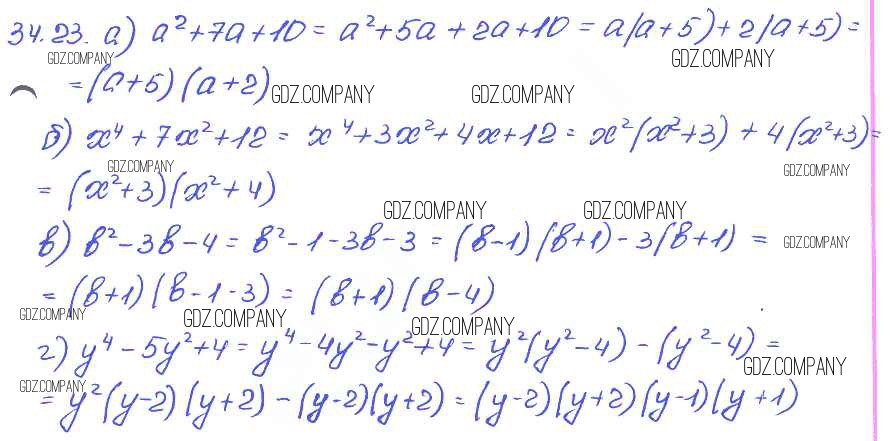 34.23. а) a² + 7a + 10 = a² + 5a + 2a + 10 = a(a + 5) + 2(a + 5) =
GDZ.COMPANY GDZ.COMPANY
= (a + 5)(a + 2) GDZ.COMPANY GDZ.COMPANY
б) x⁴ + 7x² + 12 = x⁴ + 3x² + 4x + 12 = x²(x² + 3) + 4(x² + 3) =
GDZ.COMPANY GDZ.COMPANY
= (x² + 3)(x² + 4)
GDZ.COMPANY GDZ.COMPANY
в) b² - 3b - 4 = b² - 1 - 3b - 3 = (b - 1)(b + 1) - 3(b + 1) = GDZ.COMPANY
= (b + 1)(b - 1 - 3) = (b + 1)(b - 4)
GDZ.COMPANY GDZ.COMPANY GDZ.COMPANY
г) y⁴ - 5y² + 4 = y⁴ - 4y² - y² + 4 = y²(y² - 4) - (y² - 4) =
GDZ.COMPANY GDZ.COMPANY
= y²(y - 2)(y + 2) - (y - 2)(y + 2) = (y - 2)(y + 2)(y - 1)(y + 1)